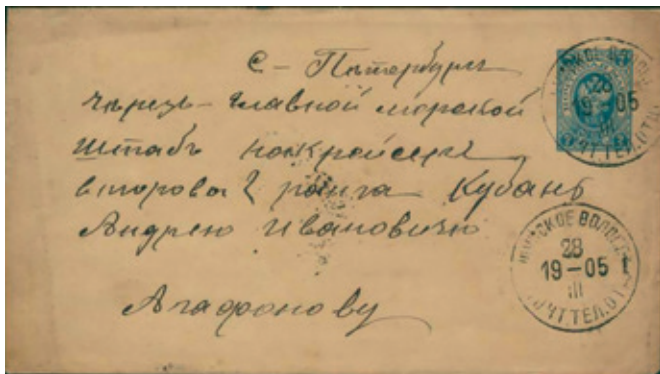 С-Петербург
чьрезъ-главной морской
штабъ накрейсиръ
второва 2 ранга Кубань
Андрею Ивановичю
Агафонову
28
19-05
III
ПОЧТ.ТЕЛ.ОТД.
СКОЕ ВОЛОГОД.
28
19-05
III
ПОЧТ.ТЕЛ.ОТД.